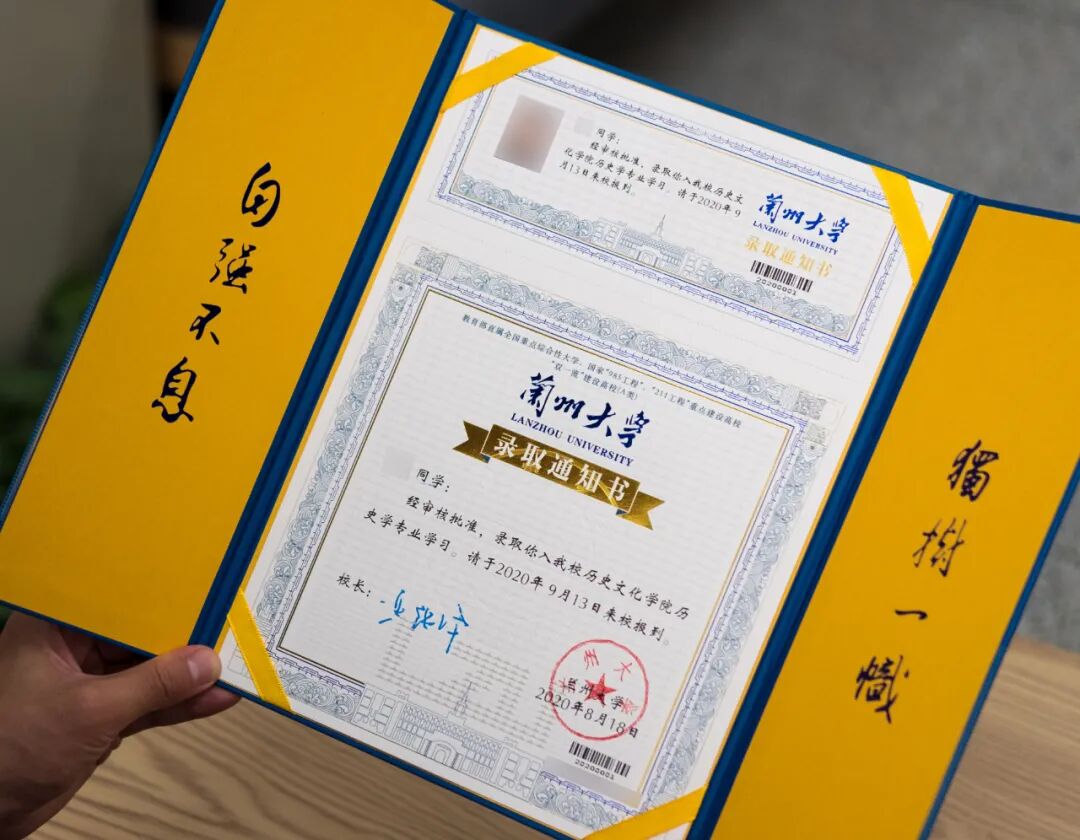 自强不息
同学：
经审核批准，录取你入我校历史文
化学院历史学专业学习。请于2020年9
月13日来校报到。
兰州大学
LANZHOU UNIVERSITY
录取通知书
20200001
教育部直属全国重点综合性大学、国家“985工程”、“211工程”重点建设高校
“双一流”建设高校(A类)
兰州大学
LANZHOU UNIVERSITY
录取通知书
同学：
经审核批准，录取你入我校历史文化学院历
史学专业学习。请于2020年9月13日来校报到。
校长：
兰州大学
2020年8月18日
20200001
獨樹一幟